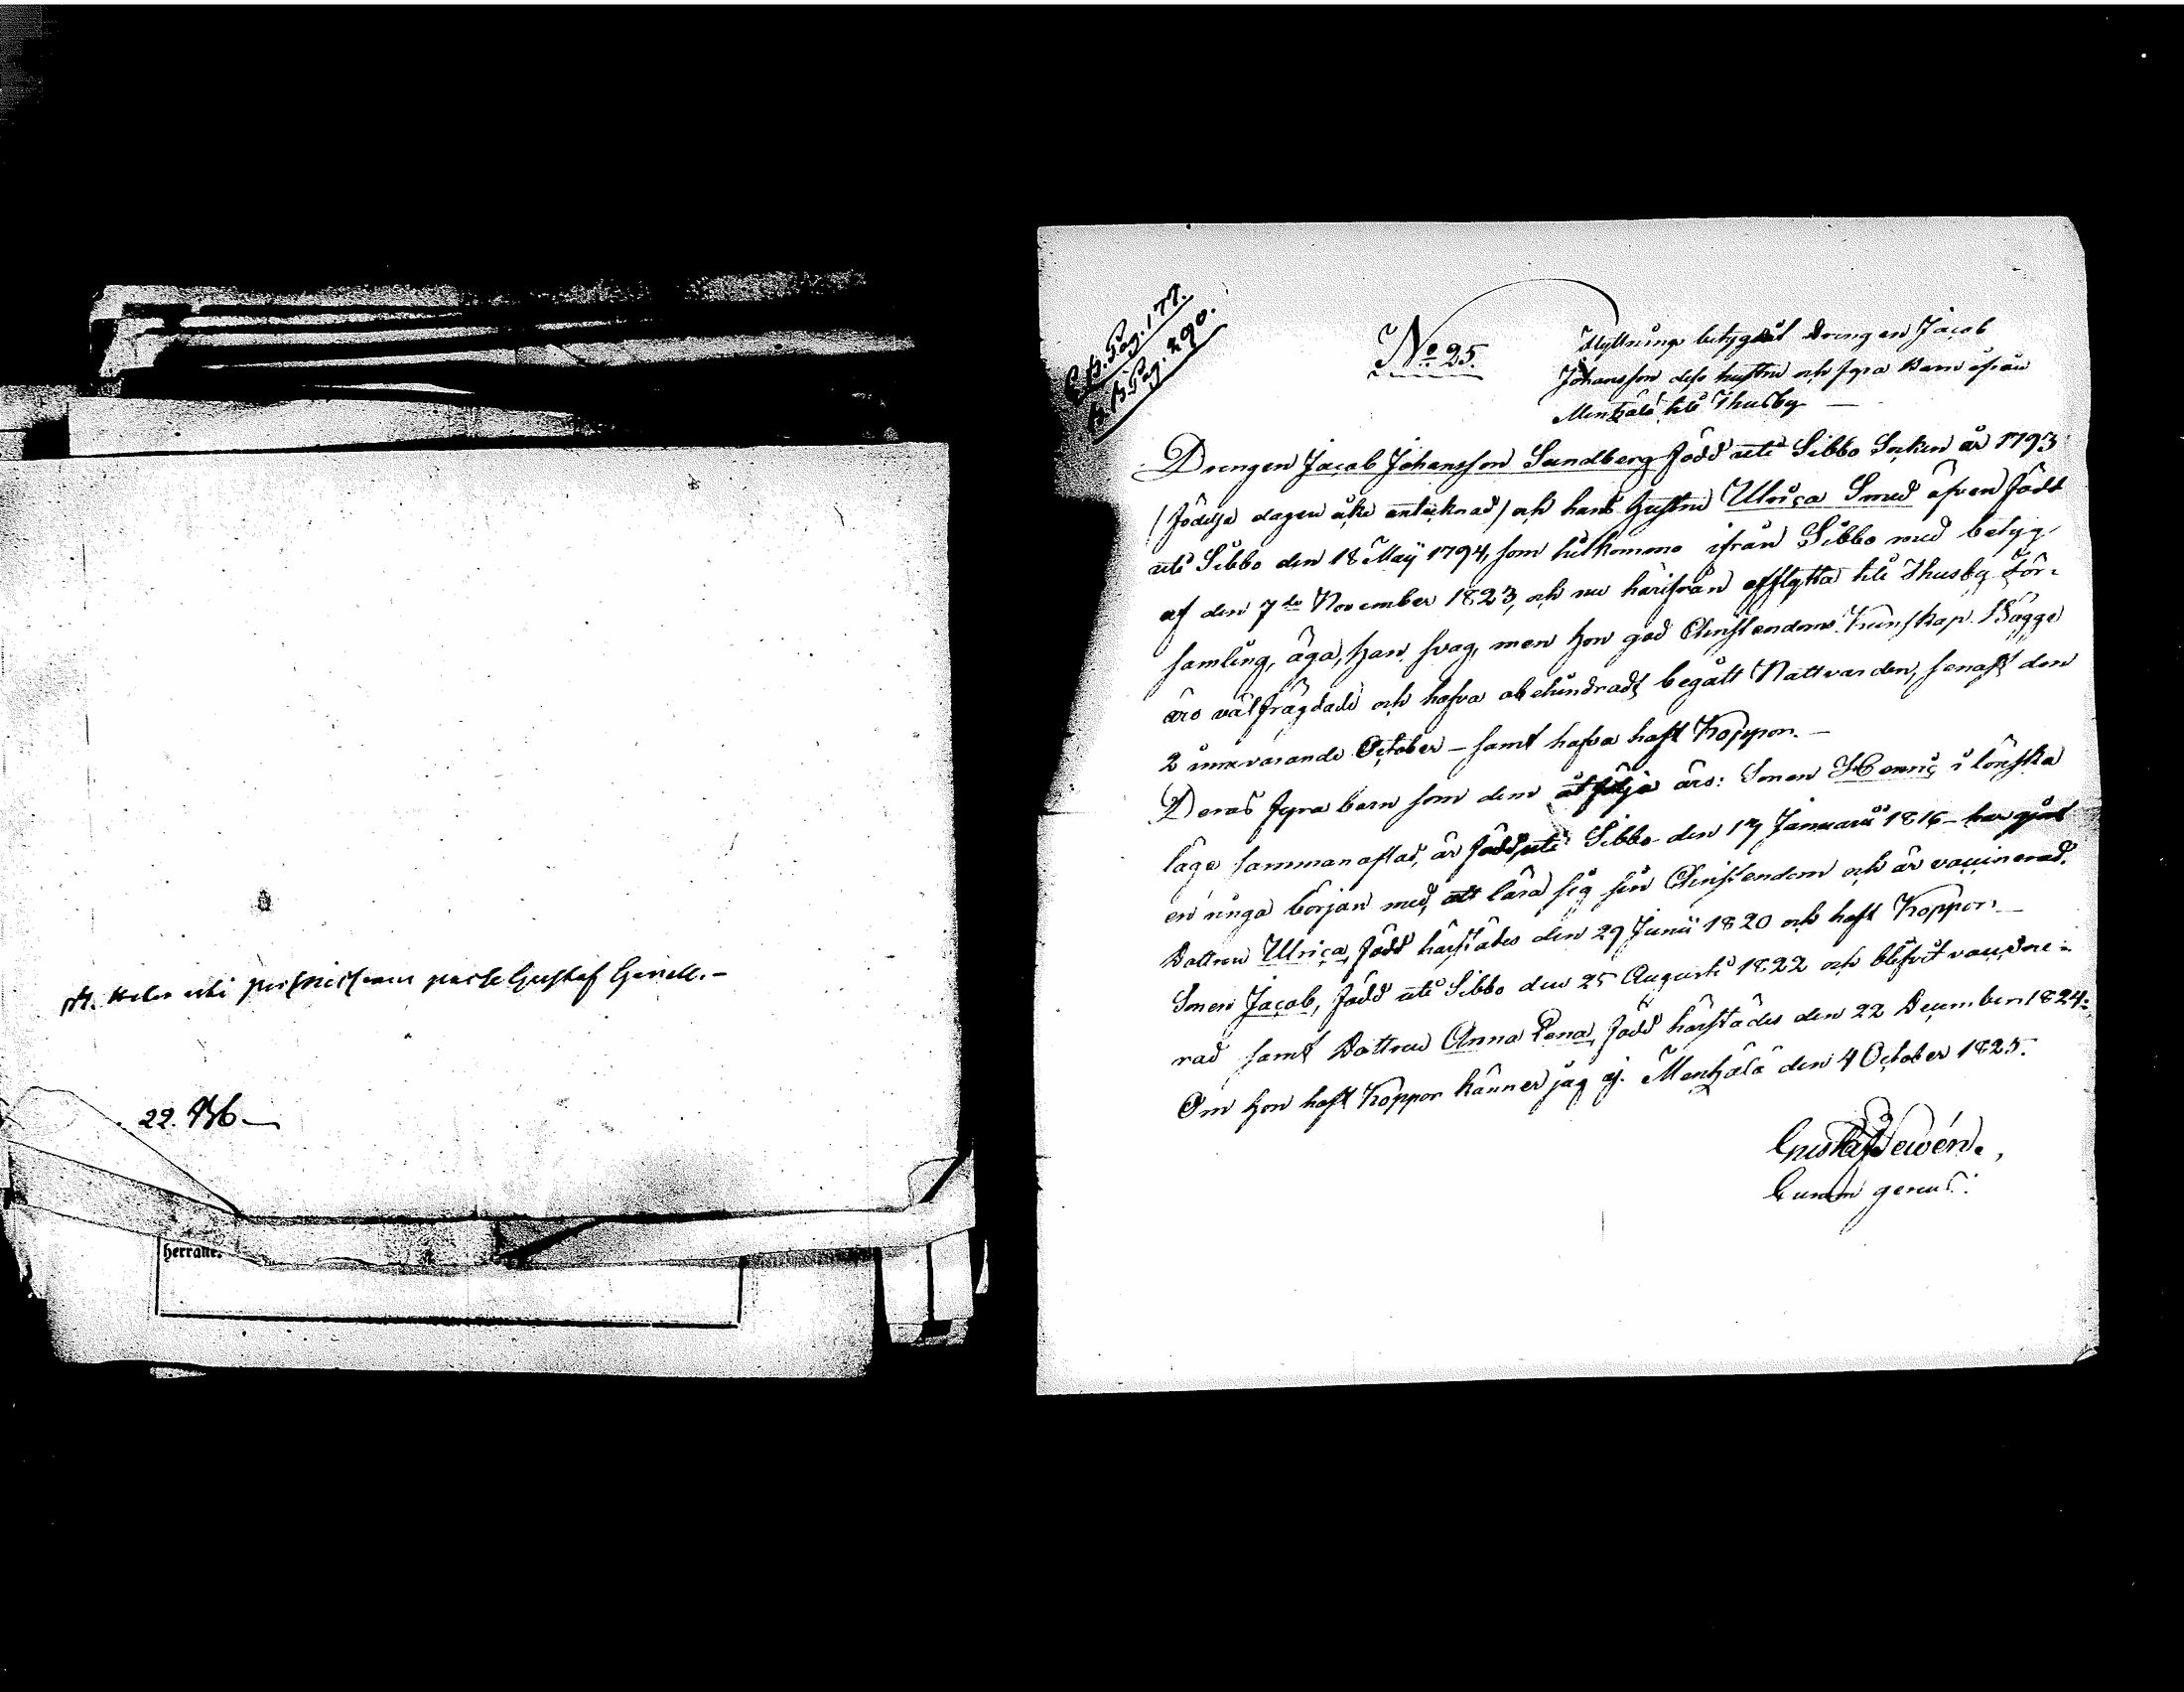 Gustaf
22.
herrane.
Pag. 177.
Pag. 290.
No 25.
Flyttnings betyg Drengen Jacob
Johansson dess hustru och fyra Barn ifrån
Mentzälä till Thusby —
Drengen Jacob Johansson Sundberg född uti Sibbo Socken år 1793
(födelse dagen icke antecknad) och hans hustru Ulrica Smed äfven född
uti Sibbo den 18 Maji 1794, som hitkommo ifrån Sibbo med betyg
af den 7de November 1823, och nu härifrån afflytta till Thusby För-
samling, äga, han svag, men hon god Christendoms Kunskap. Bägge
äro välfrägdade och hafva obehindradt begått Nattvarden, senast den
2 innevarande October – samt hafva haft Koppor. –
Deras fyra barn som dem åtfölja äro: Sonen Henric i lönska
läge sammanaflad, är född uti Sibbo den 17 Januarii 1816 – har gjort
en ringa början med, att lära sig sin Christendom och är vaccinerad.
Dottren Ulrica, född härstädes den 29 Junii 1820 och haft Koppor. –
Sonen Jacob, född uti Sibbo den 25 Augusti 1822 och blifvit vaccine-
rad samt Dottren Anna Lena, född härstädes den 22 December 1824.
Om hon haft Koppor känner jag ej. Mentzälä den 4 October 1825.
Gustaf